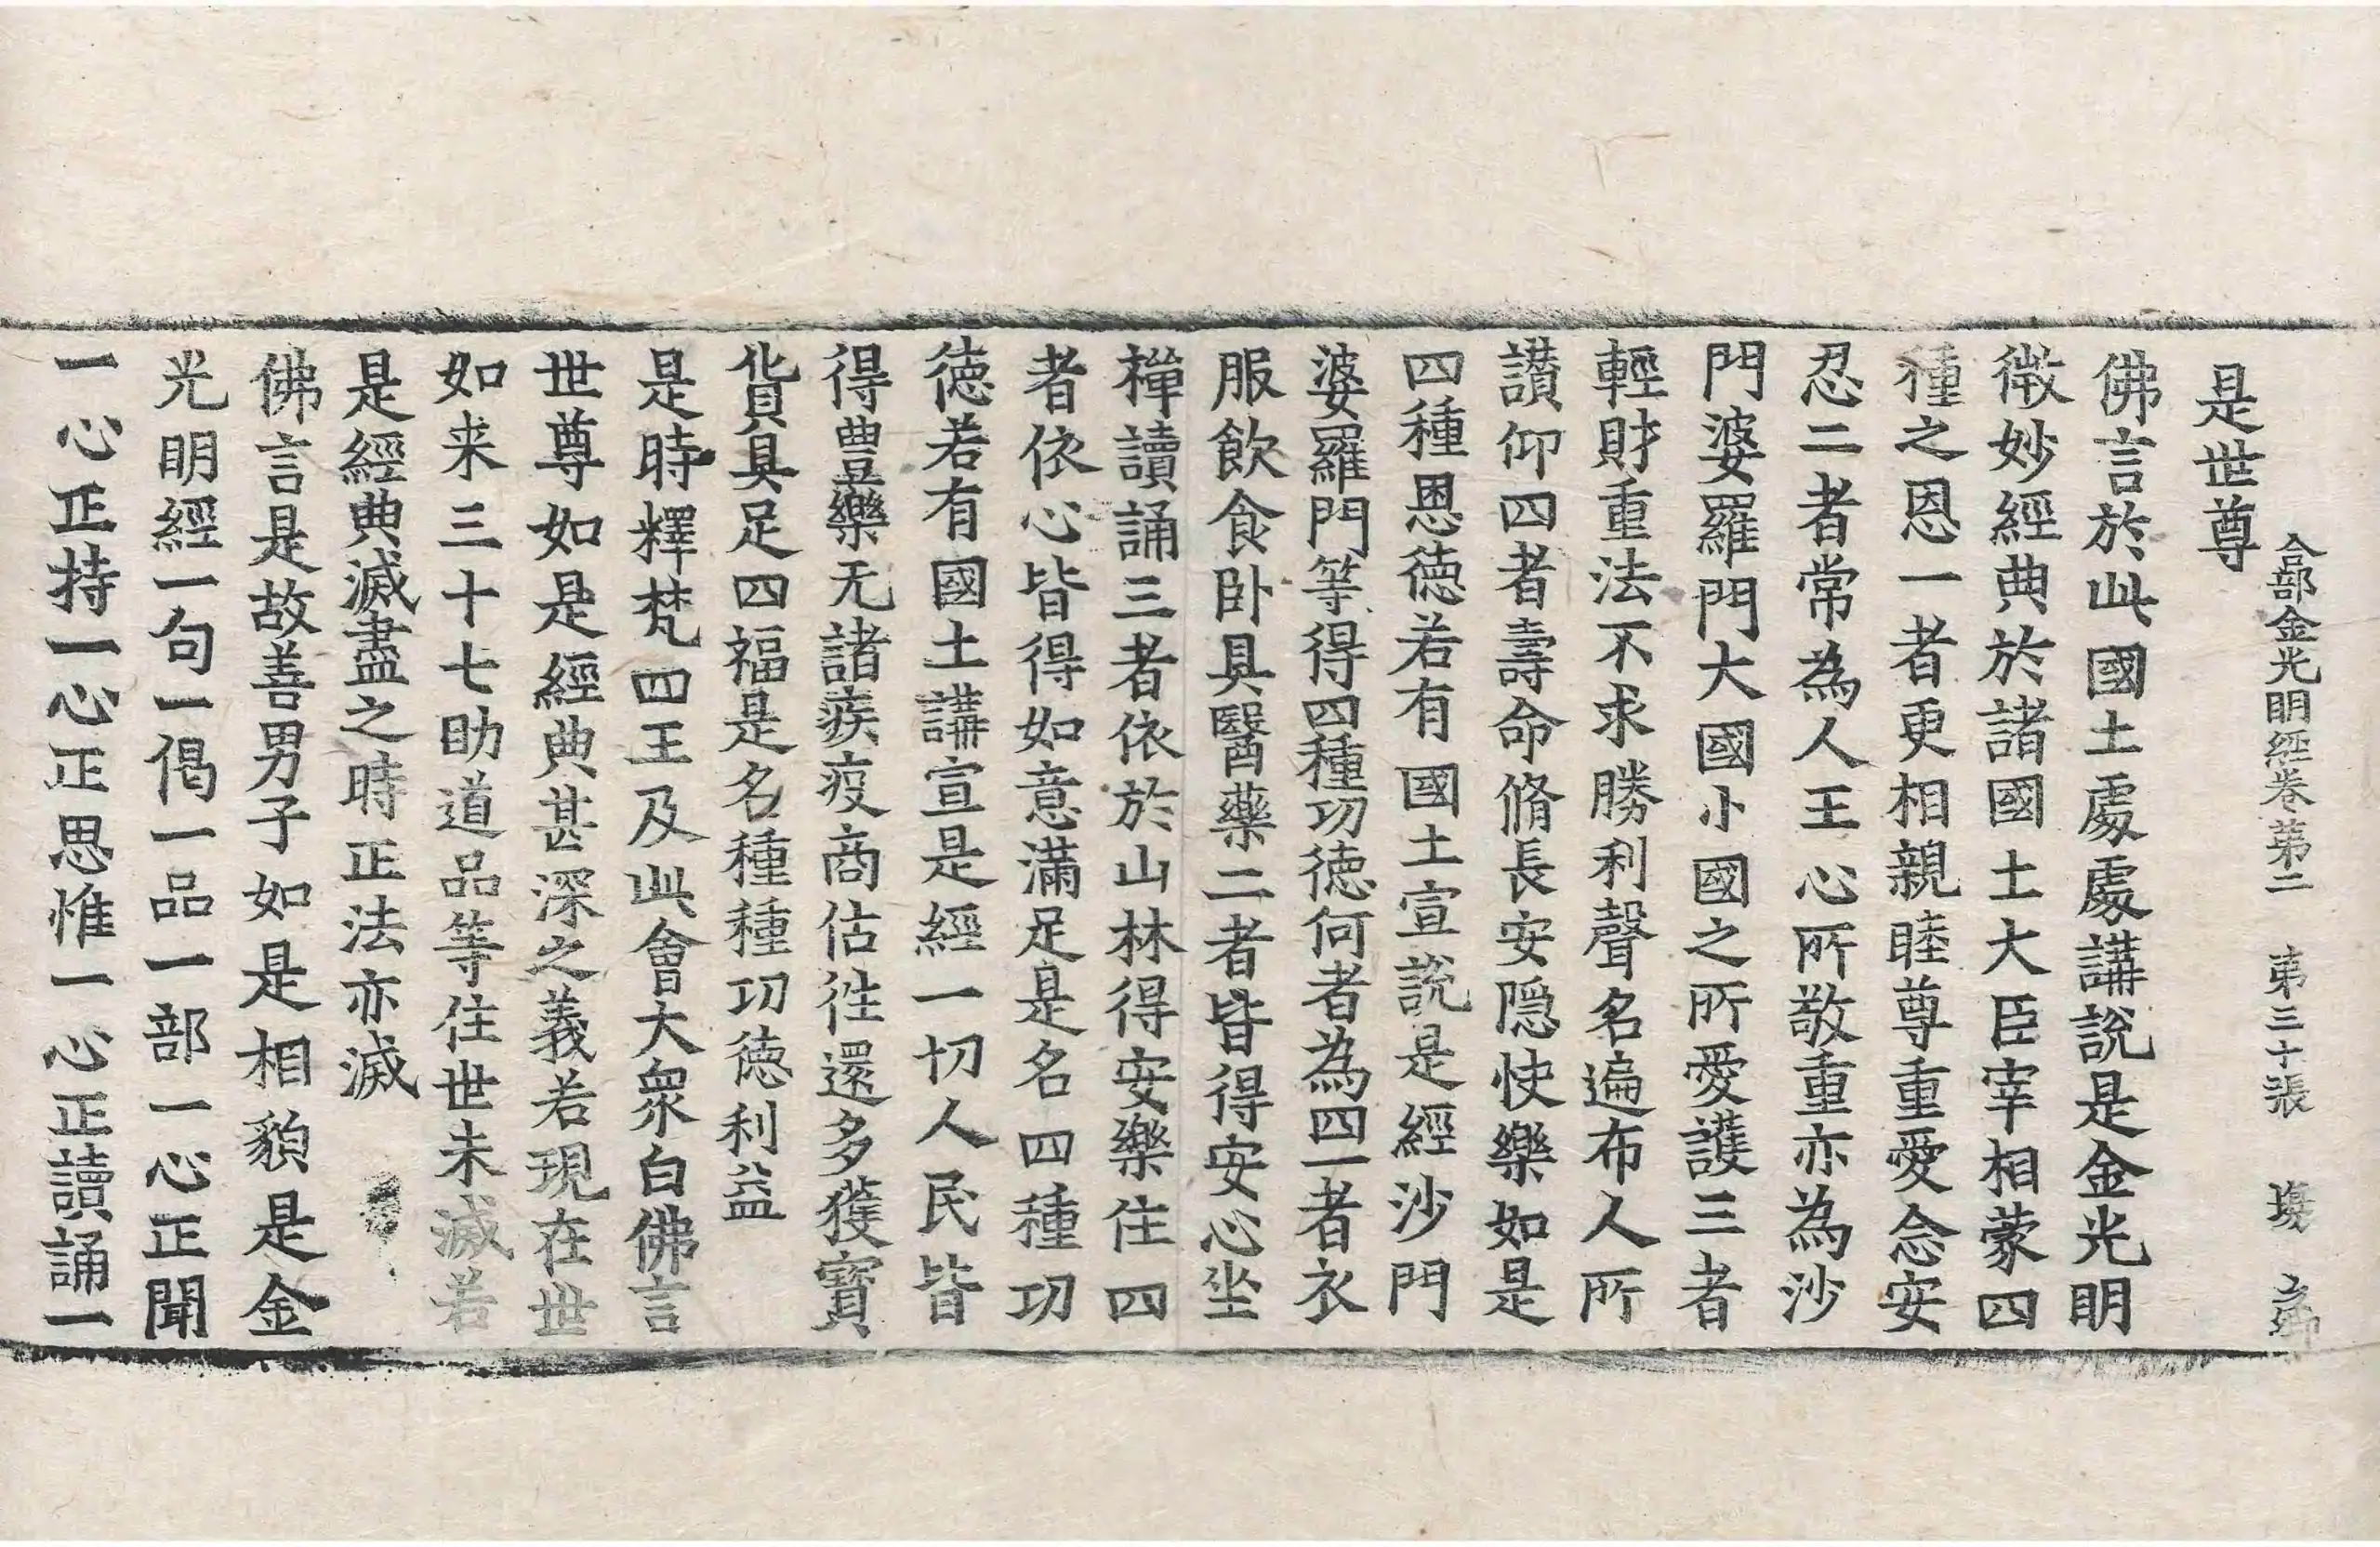 合部金光明經卷第二 第三十張 塲
是世尊
佛言於此國土處處講說是金光明
微妙經典於諸國土大臣宰相蒙四
種之恩一者更相親睦尊重愛念安
忍二者常為人王心所敬重亦為沙
門婆羅門大國小國之所愛護三者
輕財重法不求勝利聲名遍布人所
讃仰四者壽命脩長安隱快樂如是
四種恩徳若有國土宣說是經沙門
婆羅門等得四種功徳何者為四一者衣
服飲食卧具醫藥二者皆得安心坐
禪讀誦三者依於山林得安樂住四
者依心皆得如意滿足是名四種功
徳若有國土講宣是經一切人民皆
得豊樂无諸疾疫商估往還多獲寳
貨具足四福是名種種功徳利益
是時釋梵四王及此會大衆白佛言
世尊如是經典甚深之義若現在世
如来三十七助道品等住世未滅若
是經典滅盡之時正法亦滅
佛言是故善男子如是相貌是金
光明經一句一偈一品一部一心正聞
一心正持一心正思惟一心正讀誦一